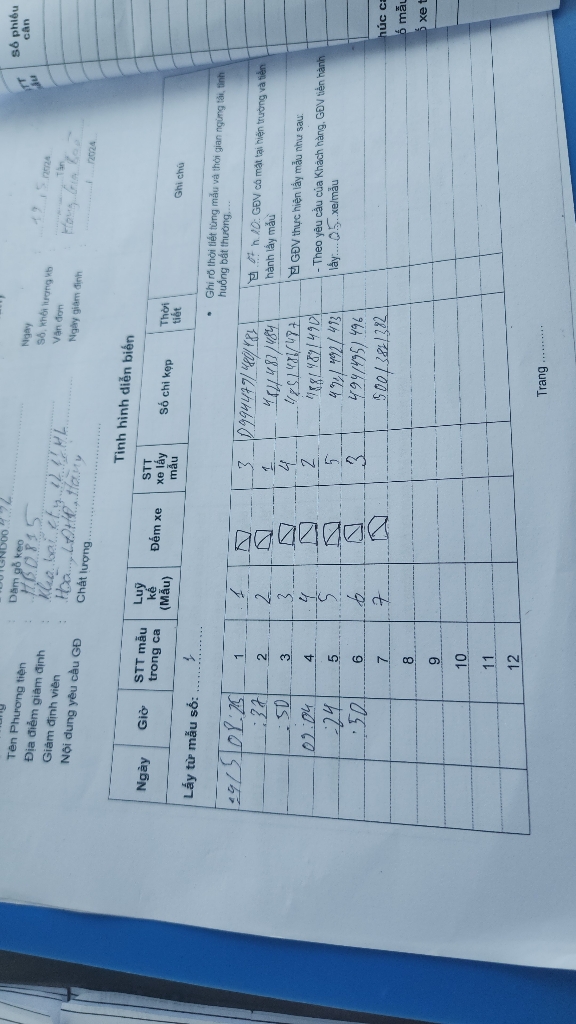 Số phiếu
cân
Dăm gỗ keo
Tên Phương tiện : HBD835
Địa điểm giám định :
Giám định viên :
Nội dung yêu cầu GĐ : Chất lượng
Ngày 19/5/2024
Số, khối lượng vb
Vận đơn
Ngày giám định ...../...../2024
Tình hình diễn biến
Ngày Giờ STT mẫu trong ca Luỹ kế (Mẫu) Đếm xe STT xe lấy mẫu Số chì kẹp Thời tiết Ghi chú
Lấy từ mẫu số: 1
• Ghi rõ thời tiết từng mẫu và thời gian ngừng tải, tình
huống bất thường,...
19/5 08:25 1 1 3 0994479/480/481
:37 2 2 1 482/483/484
:50 3 3 4 485/486/487
09:04 4 4 2 488/489/490
:24 5 5 5 491/492/493
:50 6 6 3 494/495/496
7 7 500/381/382
8
9
10
11
12
☑ 07 h 10: GĐV có mặt tại hiện trường và tiến
hành lấy mẫu
☑ GĐV thực hiện lấy mẫu như sau:
- Theo yêu cầu của Khách hàng, GĐV tiến hành
lấy:...05..xe/mẫu
Trang ..........